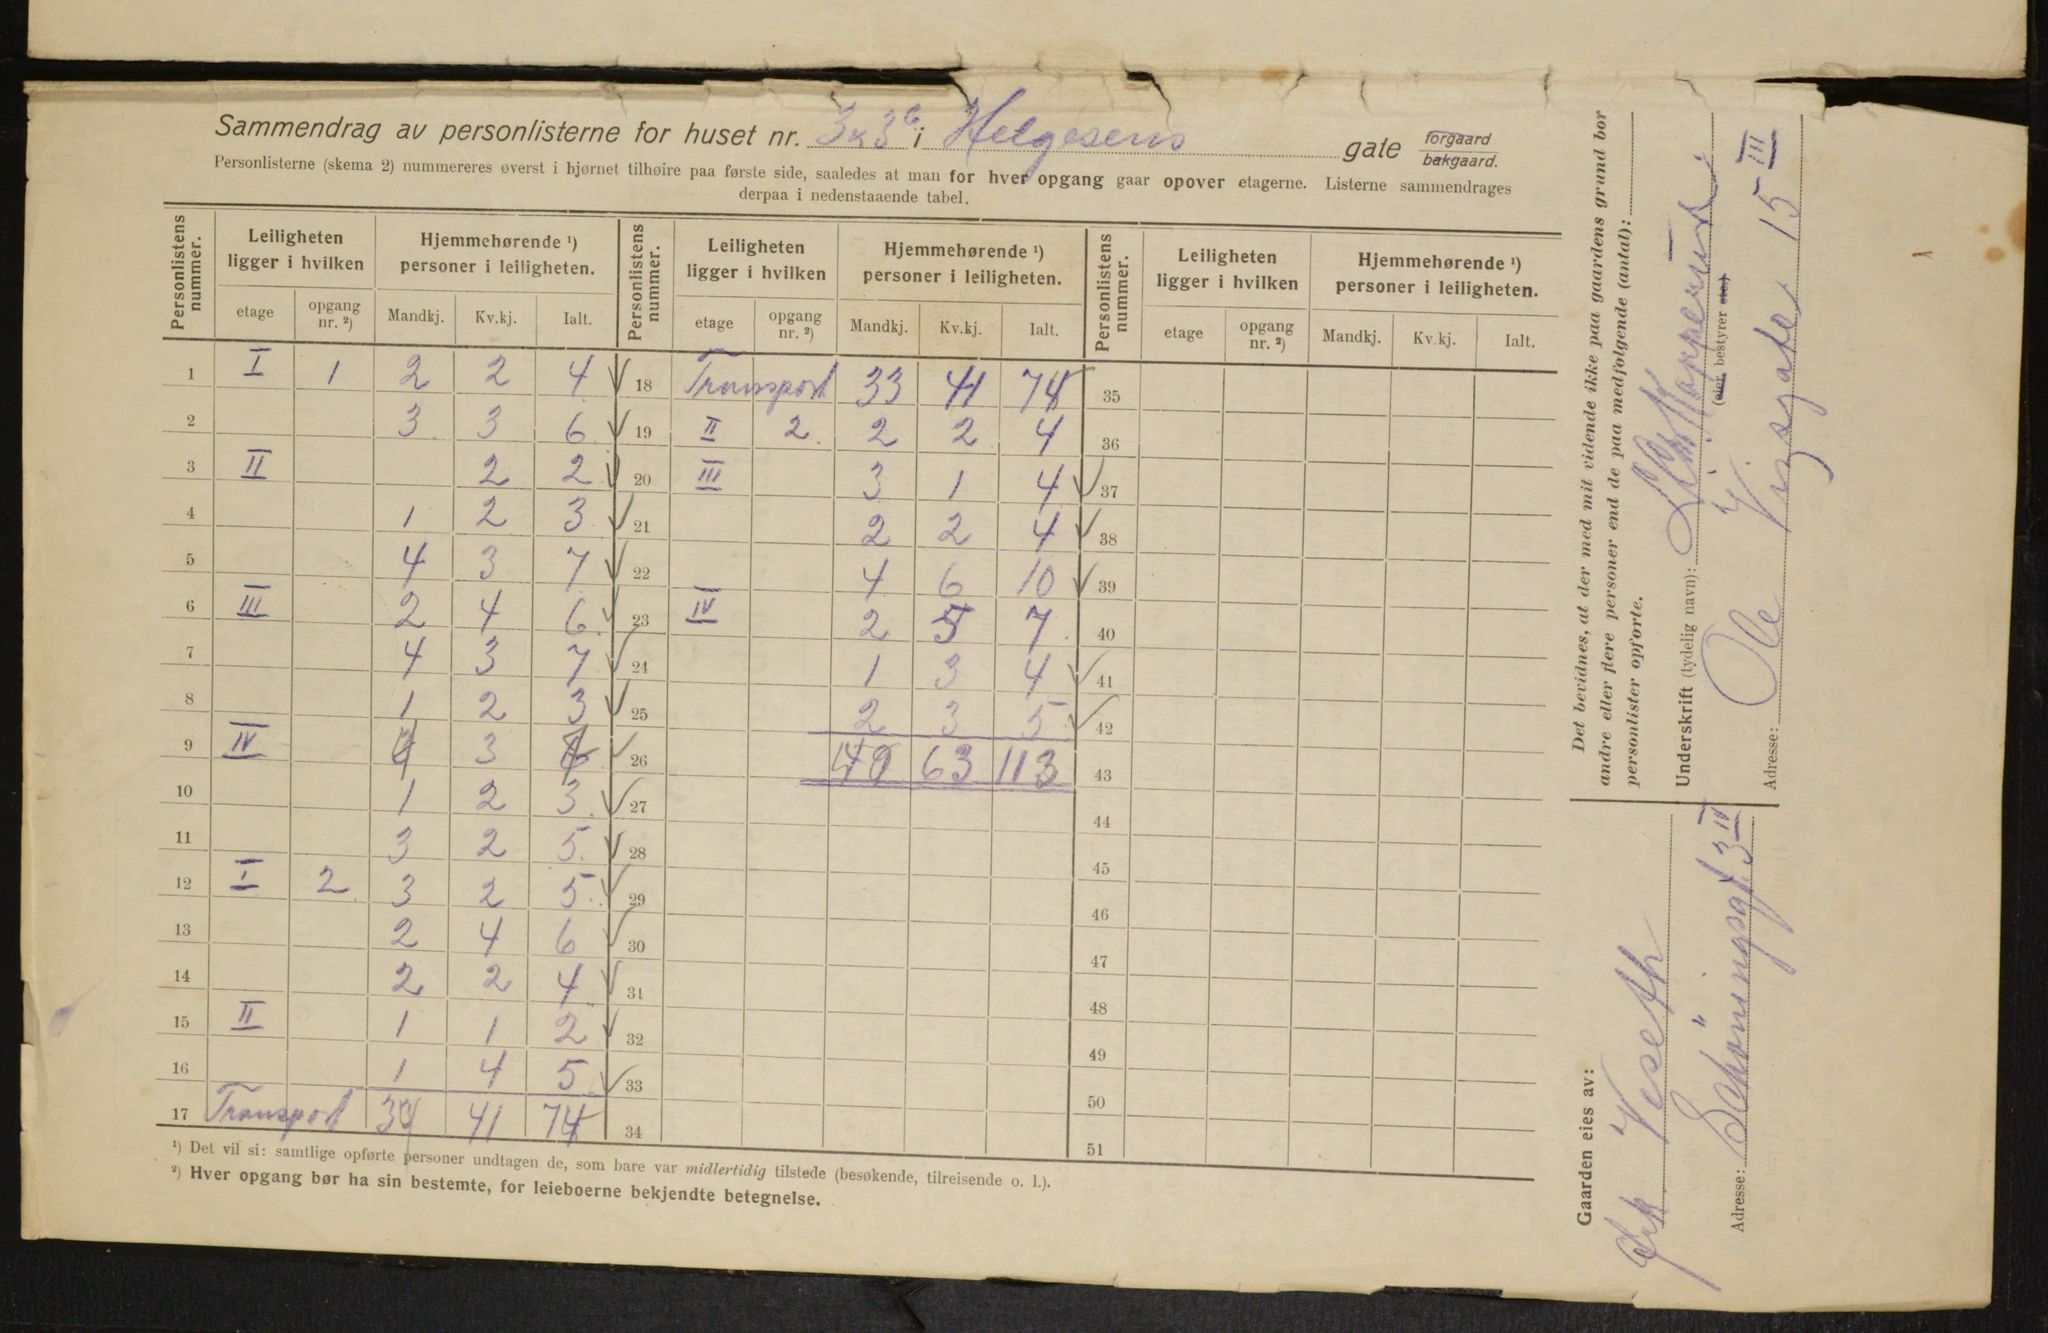 Sammendrag av personlisterne for huset nr. 3 & 3 i Helgesens gate forgaard bakgaard.
Personlisterne (skema 2) nummereres øverst i hjørnet tilhøire paa første side, saaledes at man for hver opgang gaar opover etagerne. Listerne sammendrages
derpaa i nedenstaaende tabel.
Personlistens nummer. Leiligheten ligger i hvilken Hjemmehørende ¹) personer i leiligheten. Personlistens nummer. Leiligheten ligger i hvilken Hjemmehørende ¹) personer i leiligheten. Personlistens nummer. Leiligheten ligger i hvilken Hjemmehørende ¹) personer i leiligheten.
etage opgang nr. ²) Mandkj. Kv.kj. Ialt. etage opgang nr. ²) Mandkj. Kv.kj. Ialt. etage opgang nr. ²) Mandkj. Kv.kj. Ialt.
1 I 1 2 2 4 18 Transport 33 41 74 35
2 3 3 6 19 II 2 2 2 4 36
3 II 2 2 20 III 3 1 4 37
4 1 2 3 21 2 2 4 38
5 4 3 7 22 4 6 10 39
6 III 2 4 6 23 IV 2 5 7 40
7 4 3 7 24 1 3 4 41
8 1 2 3 25 2 3 5 42
9 IV 3 26 63 113 43
10 1 2 3 27 44
11 3 2 5 28 45
12 I 2 3 2 5 29 46
13 2 4 6 30 47
14 2 2 4 31 48
15 II 1 1 2 32 49
16 1 4 5 33 50
17 Transport 41 74 34 51
¹) Det vil si: samtlige opførte personer undtagen de, som bare var midlertidig tilstede (besøkende, tilreisende o. l.).
²) Hver opgang bør ha sin bestemte, for leieboerne bekjendte betegnelse.
Det bevidnes, at der med mit vidende ikke paa gaardens grund bor
andre eller flere personer end de paa medfølgende (antal):
personlister opførte.
Underskrift (tydelig navn):
(eier, bestyrer etc)
Adresse: Ole Viigsgate 15 III
Gaarden eies av:
Veseth
Adresse: Schöningsgt. 3 IV